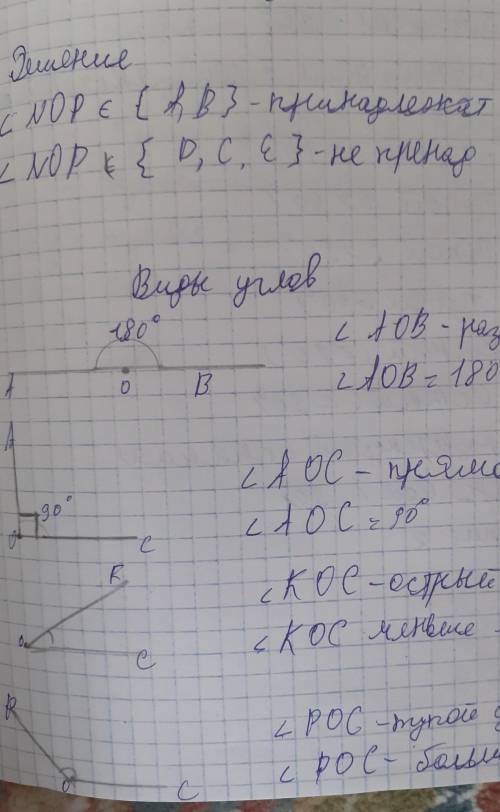 Решение
∠NOP ∈ {A, B} - принадлежат
∠NOP ∉ {D, C, E} - не пренад
Виды углов
180°
A O B
∠AOB - раз
∠AOB = 180
A
90°
O C
∠AOC - прямо
∠AOC = 90°
K
O C
∠KOC - острый
∠KOC меньше
P
O C
∠POC - тупой
∠POC - больш